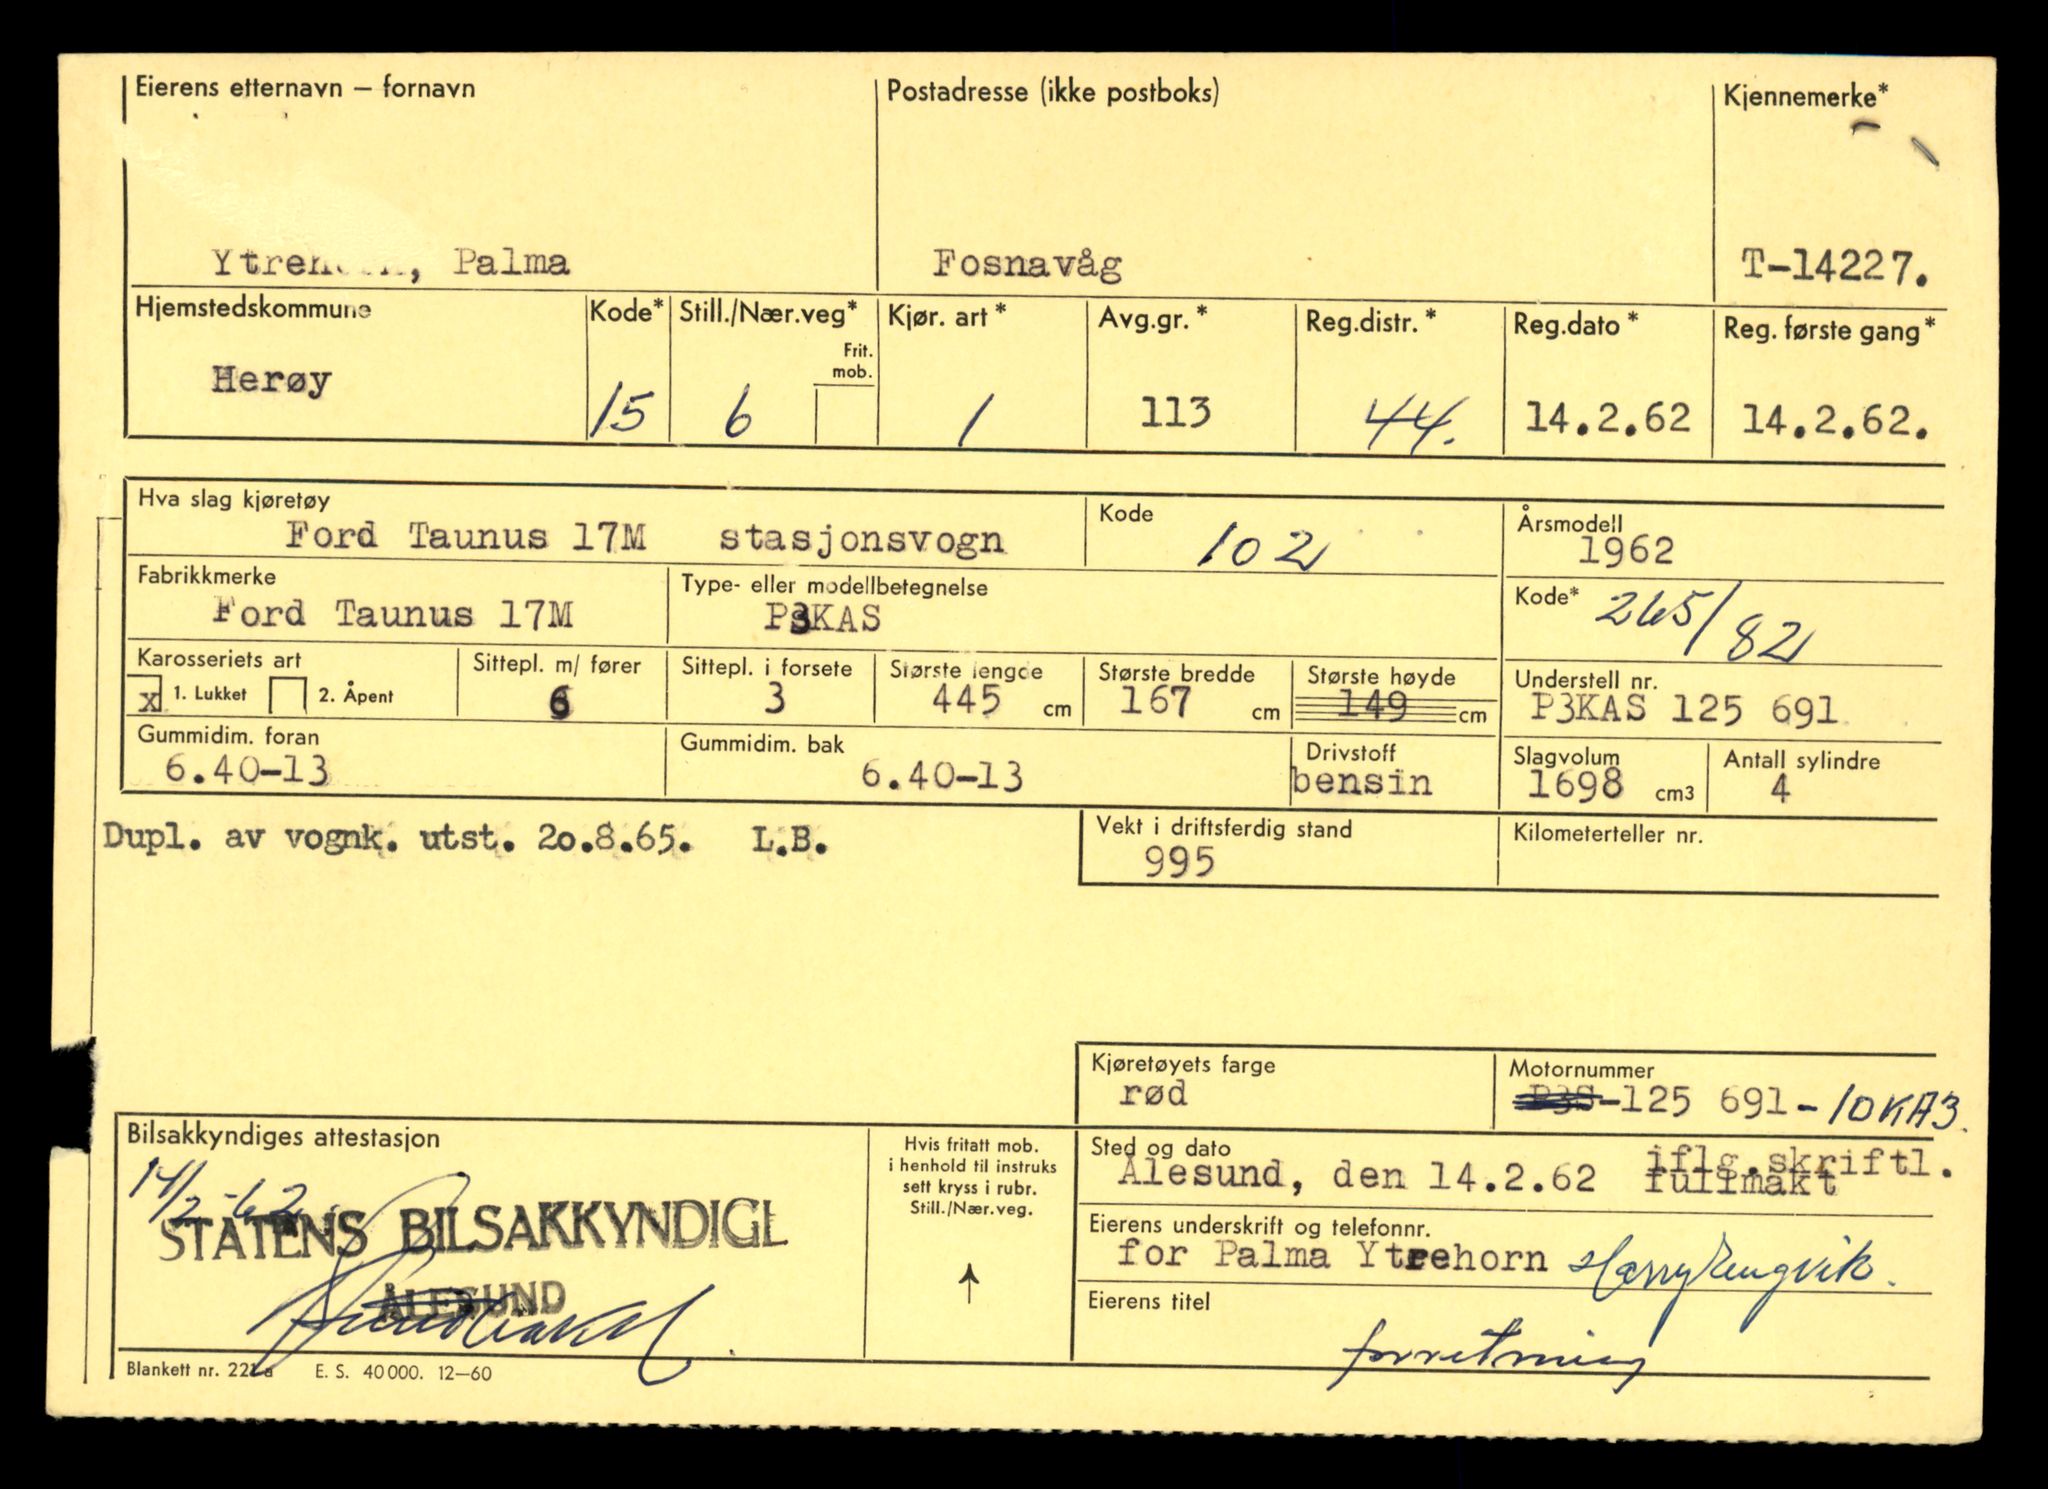 Eierens etternavn – fornavn Postadresse (ikke postboks) Kjennemerke*
Palma Fosnavåg T-14227.
Hjemstedskommune Kode* Still./Nær.veg* Kjør. art* Avg.gr.* Reg.distr.* Reg.dato* Reg. første gang*
Frit. mob.
Herøy 15 6 1 113 44. 14.2.62 14.2.62.
Hva slag kjøretøy Kode Årsmodell
Ford Taunus 17M stasjonsvogn 102 1962
Fabrikkmerke Type- eller modellbetegnelse Kode*
Ford Taunus 17M P3KAS 265/82
Karosseriets art Sittepl. m/ fører Sittepl. i forsete Største lengde Største bredde Største høyde Understell nr.
x 1. Lukket 2. Åpent 6 3 445 cm 167 cm 149 cm P3KAS 125 691
Gummidim. foran Gummidim. bak Drivstoff Slagvolum Antall sylindre
6.40-13 6.40-13 bensin 1698 cm3 4
Dupl. av vognk. utst. 20.8.65. L.B.
Vekt i driftsferdig stand Kilometerteller nr.
995
Kjøretøyets farge Motornummer
rød P3S-125 691-10KA3.
Bilsakkyndiges attestasjon
14/2-62
STATENS BILSAKKYNDIGE
ÅLESUND
Hvis fritatt mob.
i henhold til instruks
sett kryss i rubr.
Still./Nær.veg.
Sted og dato
Ålesund, den 14.2.62 iflg.skriftl.
fullmakt
Eierens underskrift og telefonnr.
for Palma Ytrehorn Harry Rengvik.
Eierens titel
forretning
Blankett nr. 221 a E. S. 40 000. 12–60